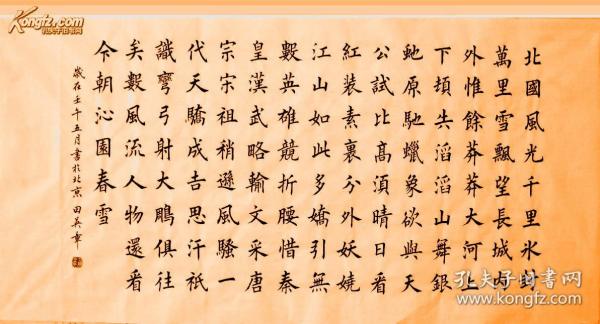 Kongfz.com
孔夫子旧书网
北國風光千里氷封
萬里雪飄望長城内
外惟餘莽莽大河上
下頓失滔滔山舞銀
虵原馳蠟象欲與天
公試比高須晴日看
紅裝素裹分外妖嬈
江山如此多嬌引無
數英雄競折腰惜秦
皇漢武略輸文采唐
宗宋祖稍遜風騷一
代天驕成吉思汗祇
識彎弓射大鵰俱往
矣數風流人物還看
今朝沁園春雪
歲在壬午五月書於北京田英章
孔夫子旧书网
www.kongfz.com